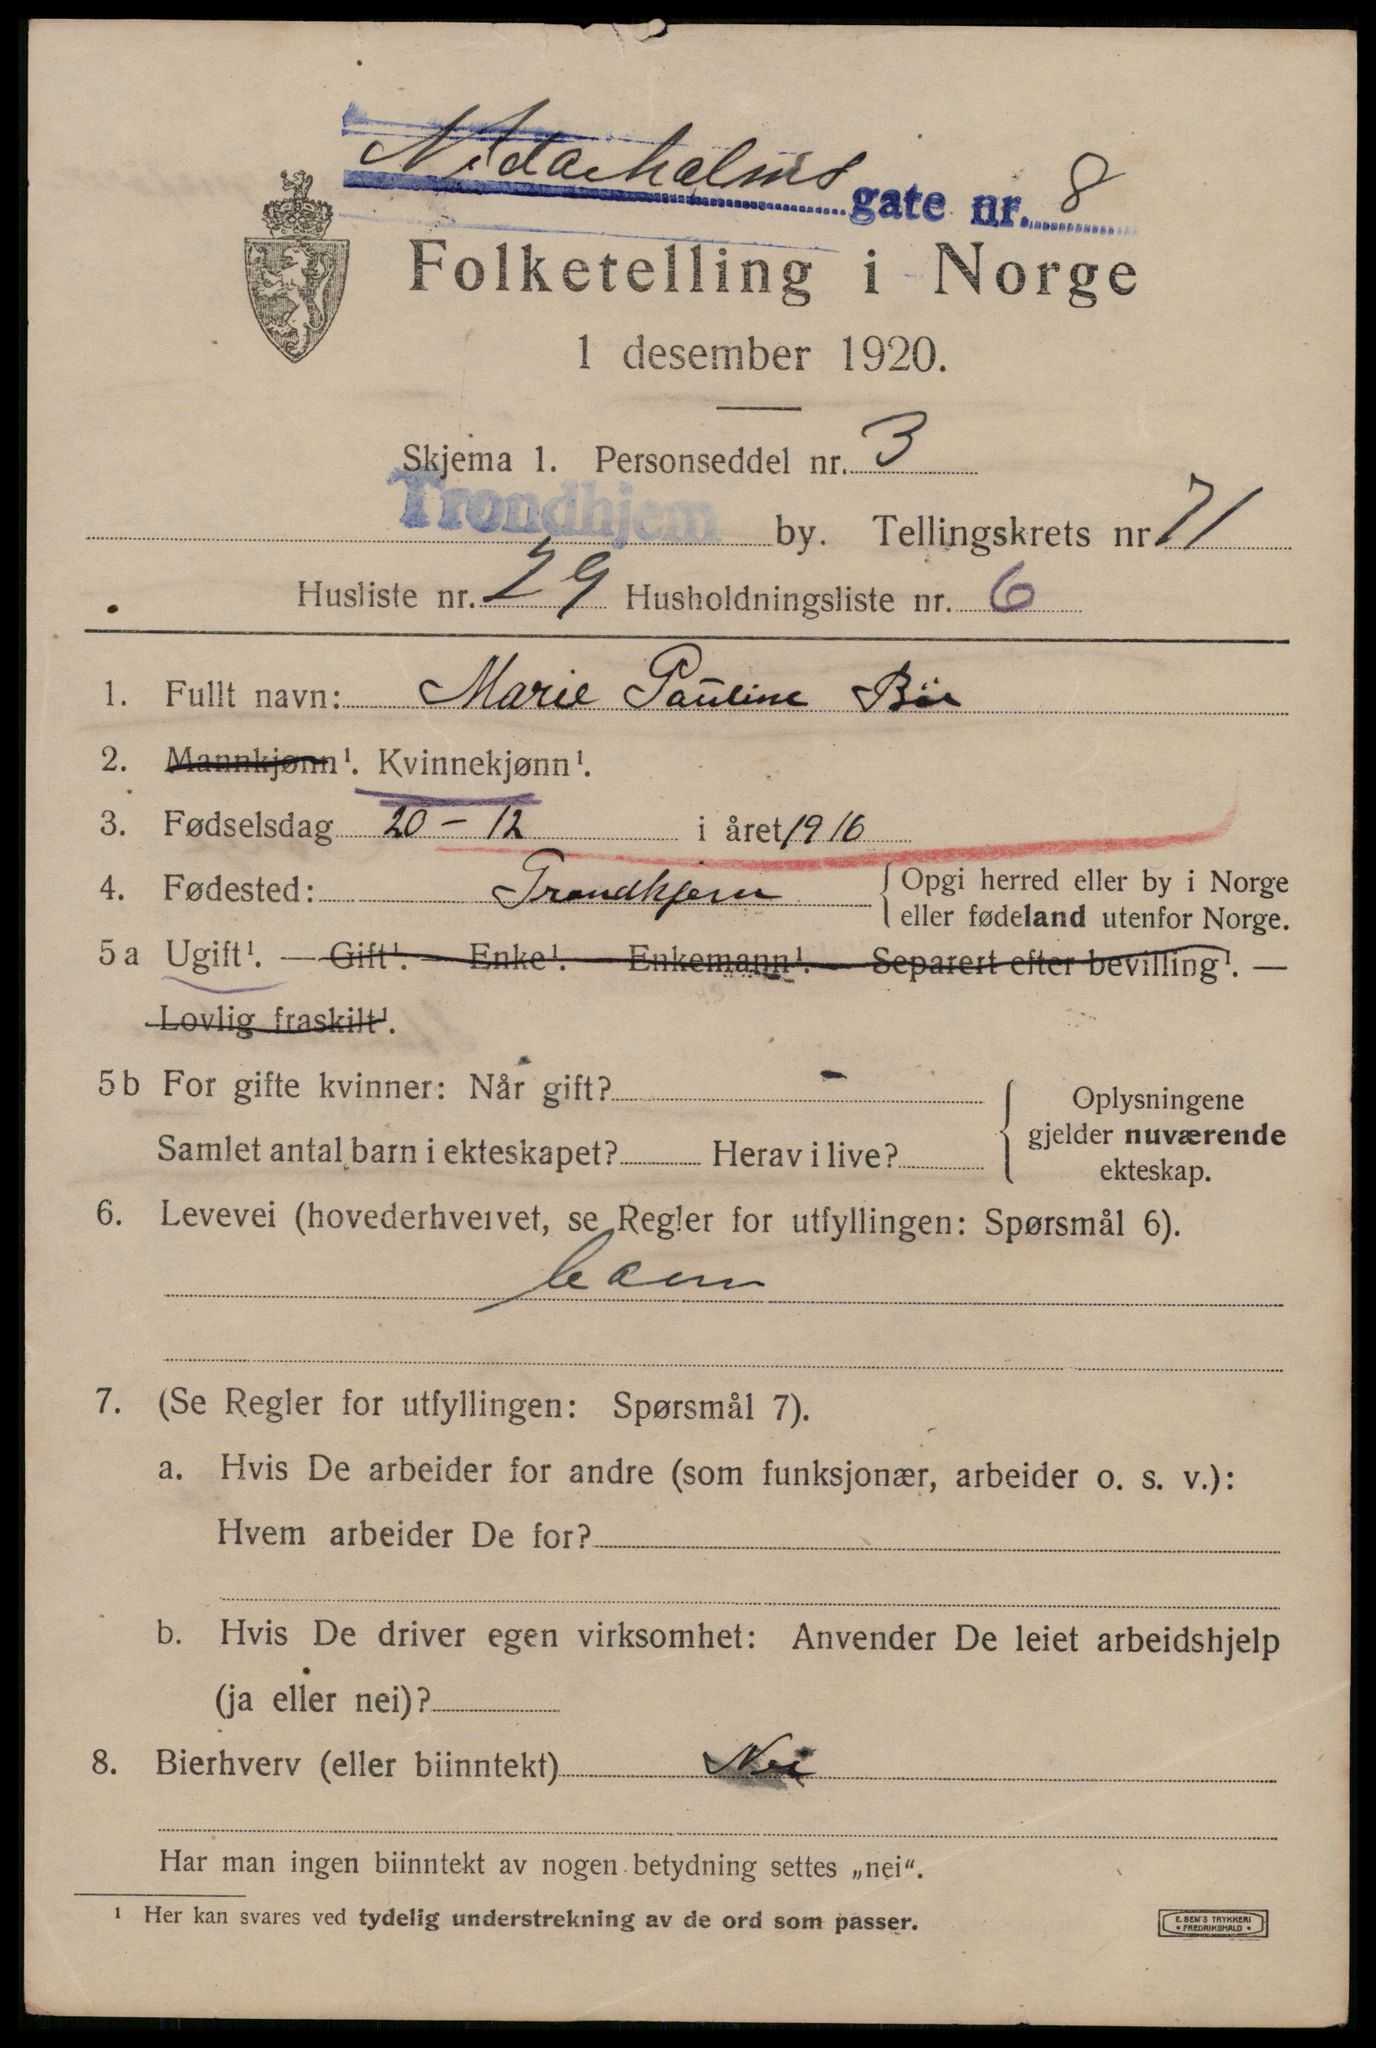 Nidarholms gate nr. 8
Folketelling i Norge
1 desember 1920.
Skjema 1. Personseddel nr. 3
Trondhjem by. Tellingskrets nr 71
Husliste nr. 29 Husholdningsliste nr. 6
1. Fullt navn: Marie Pauline
2. Mannkjønn¹. Kvinnekjønn¹.
3. Fødselsdag 20-12 i året 1916
4. Fødested: Trondhjem { Opgi herred eller by i Norge
eller fødeland utenfor Norge.
5 a Ugift¹. — Gift¹. — Enke¹. — Enkemann¹. — Separert efter bevilling¹. —
Lovlig fraskilt¹.
5 b For gifte kvinner: Når gift? -
Samlet antal barn i ekteskapet? Herav i live?
{ Oplysningene
gjelder nuværende
ekteskap.
6. Levevei (hovederhvervet, se Regler for utfyllingen: Spørsmål 6).
barn
7. (Se Regler for utfyllingen: Spørsmål 7).
a. Hvis De arbeider for andre (som funksjonær, arbeider o. s. v.):
Hvem arbeider De for?
b. Hvis De driver egen virksomhet: Anvender De leiet arbeidshjelp
(ja eller nei)?
8. Bierhverv (eller biinntekt) Nei
Har man ingen biinntekt av nogen betydning settes „nei“.
¹ Her kan svares ved tydelig understrekning av de ord som passer.
E. SEM'S TRYKKERI
• FREDRIKSHALD •